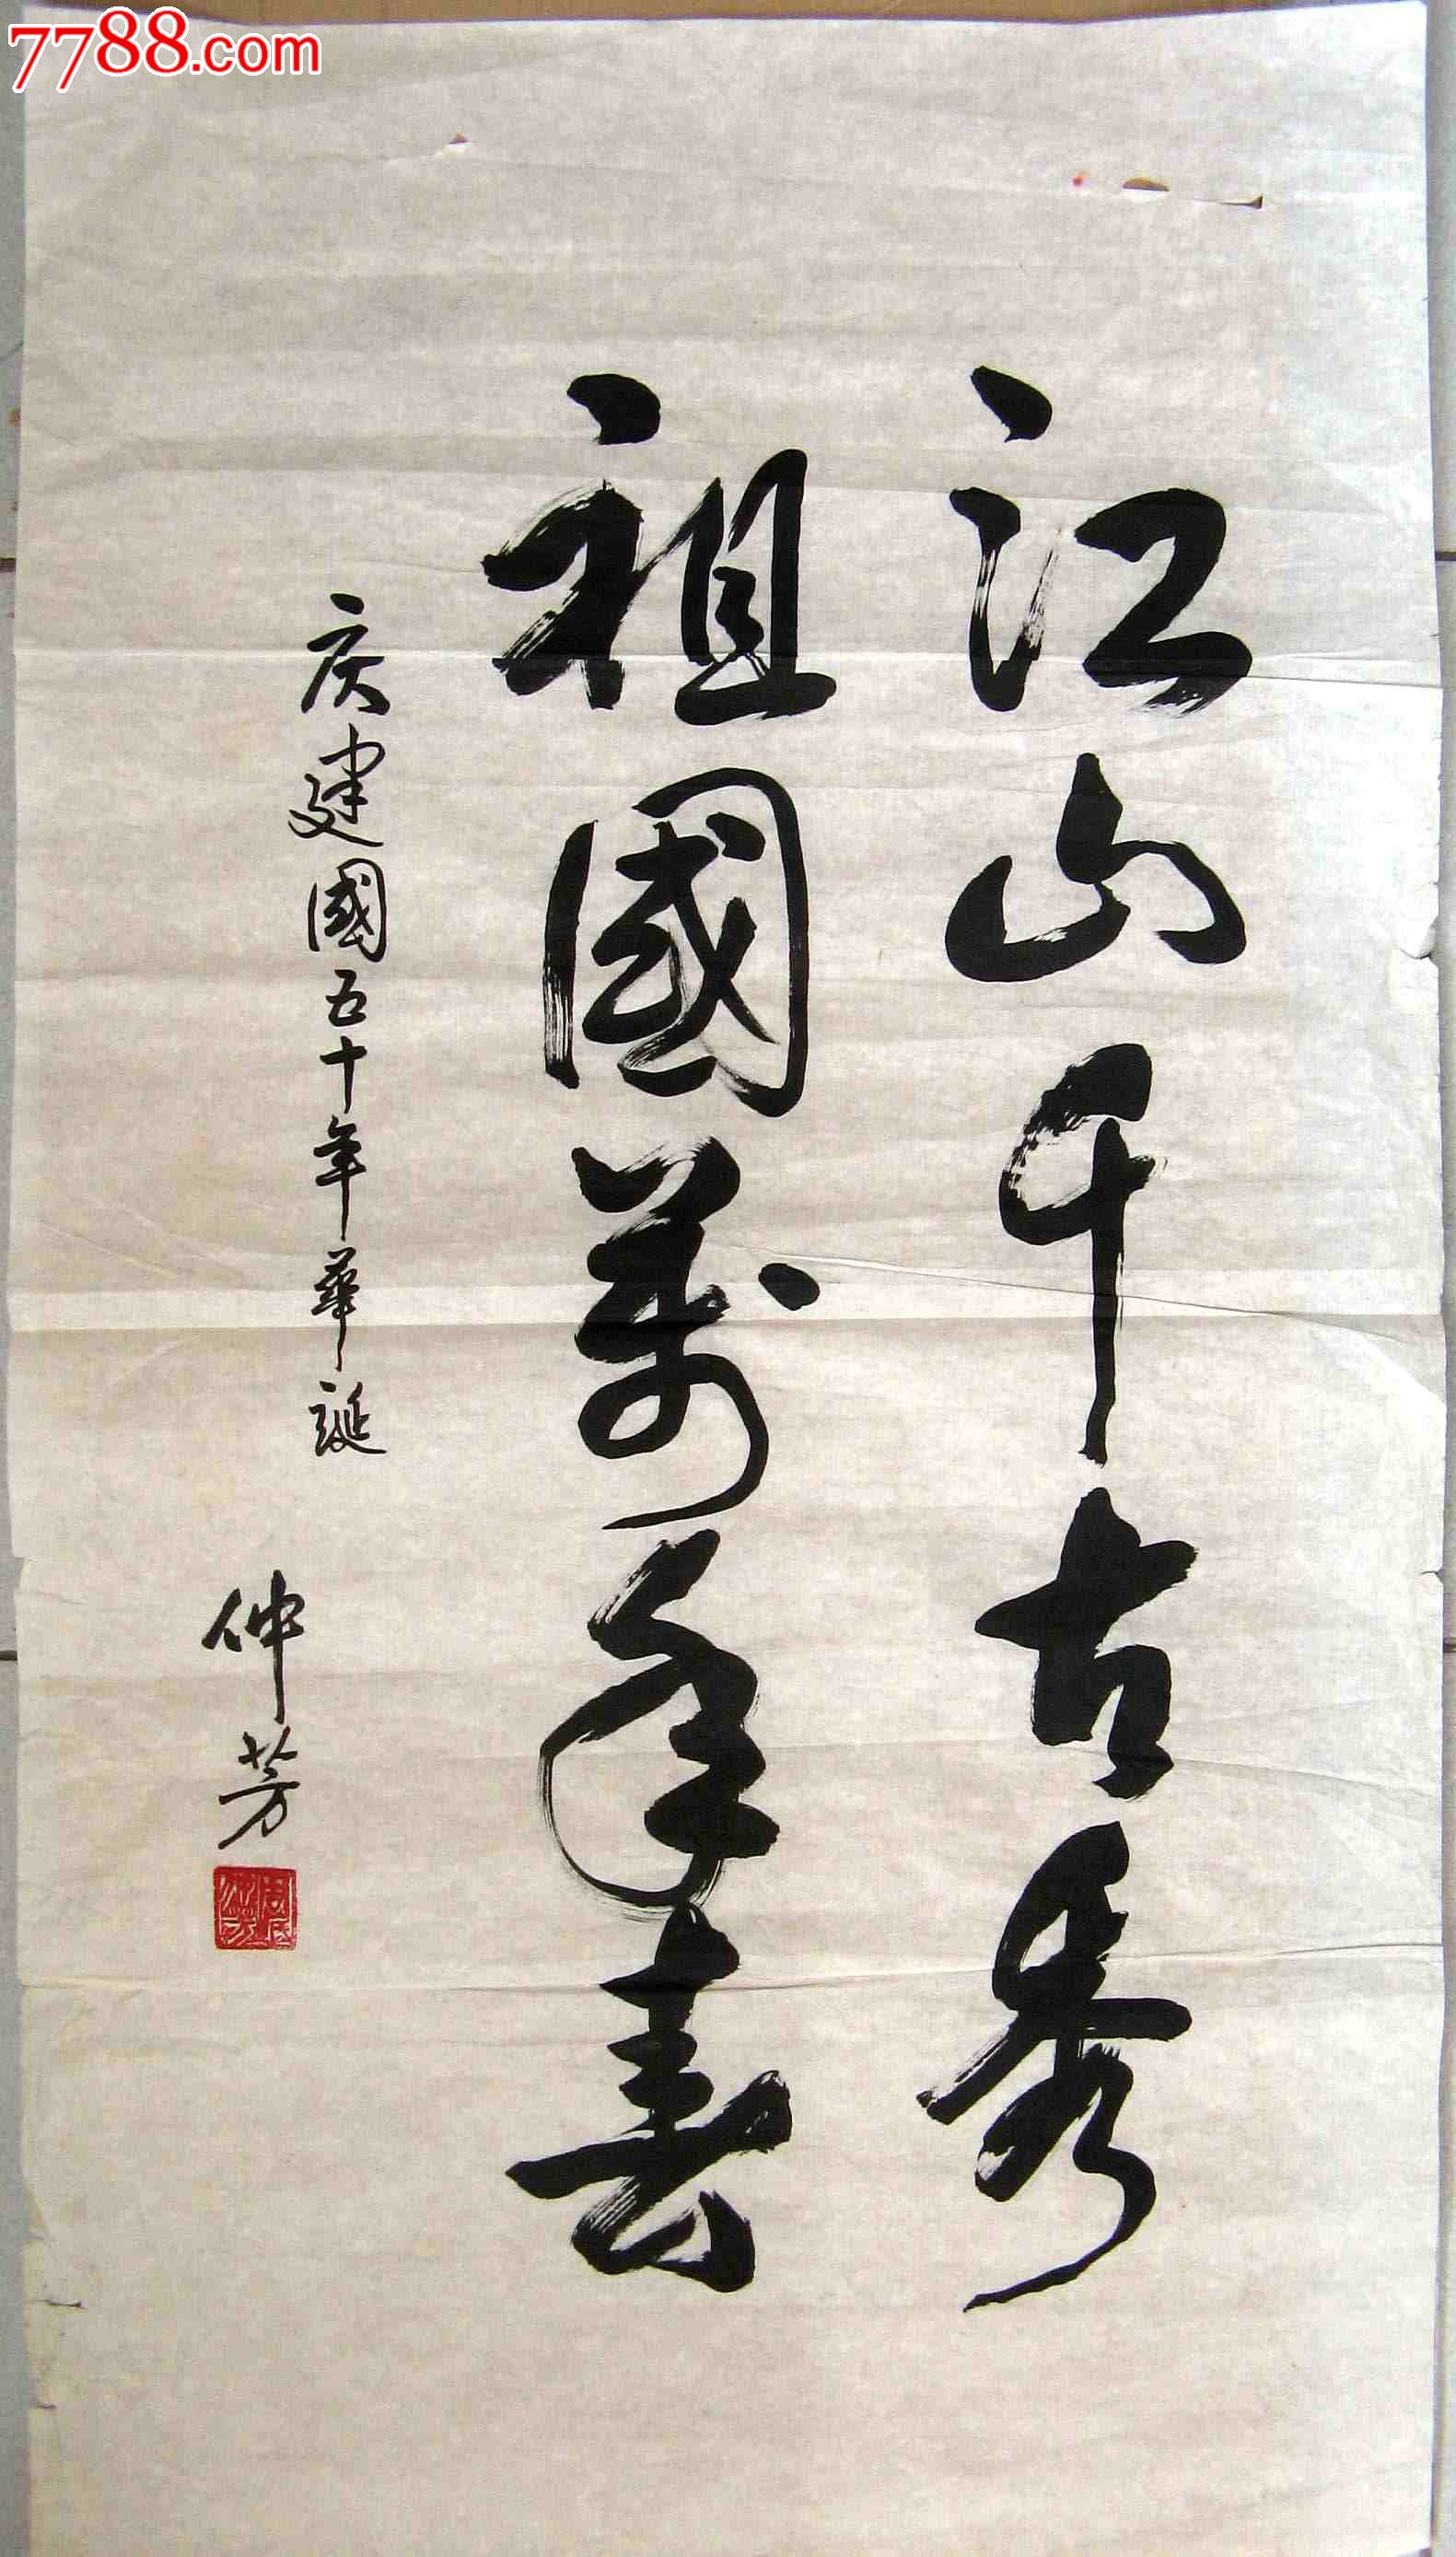 7788.com
江山千古秀
祖國萬年春
庆建國五十年華誕
仲芳